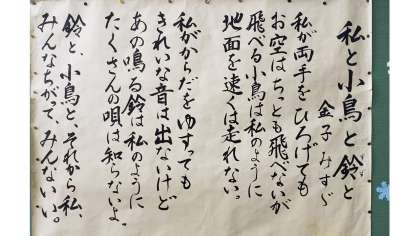 私と小鳥と鈴と
金子みすゞ
私が両手をひろげても
お空はちっとも飛べないが
飛べる小鳥は私のように
地面を速くは走れない。
私がからだをゆすっても
きれいな音は出ないけど
あの鳴る鈴は私のように
たくさんの唄は知らないよ。
鈴と、小鳥と、それから私、
みんなちがって、みんないい。